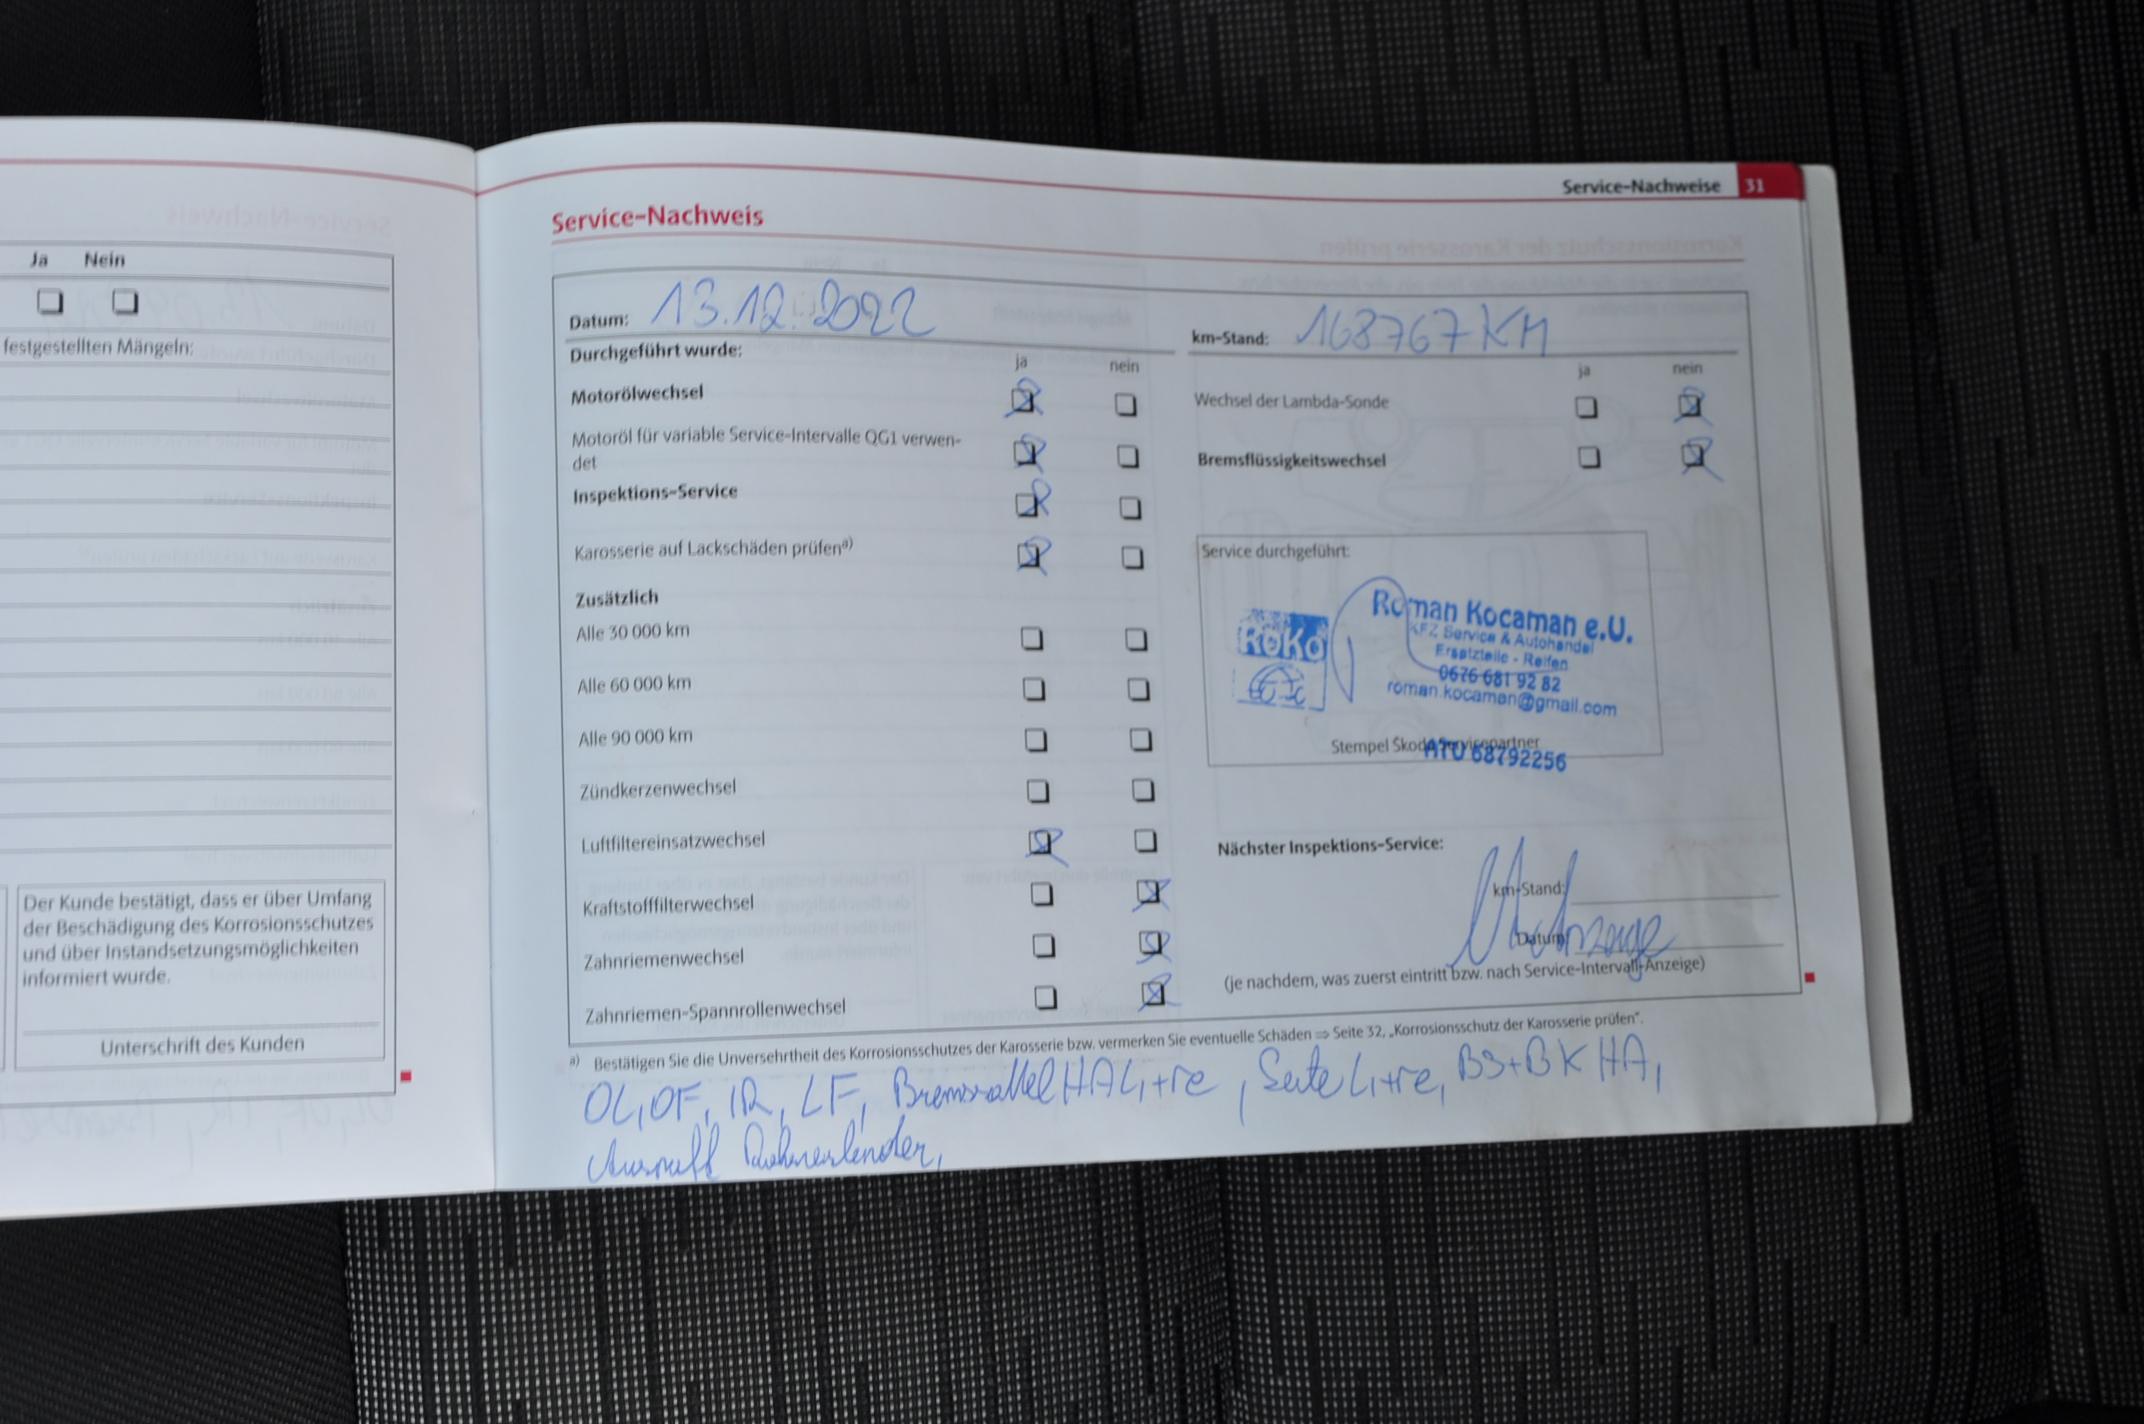 Ja Nein
festgestellten Mängeln:
Der Kunde bestätigt, dass er über Umfang
der Beschädigung des Korrosionsschutzes
und über Instandsetzungsmöglichkeiten
informiert wurde.
Unterschrift des Kunden
Service-Nachweise 31
Service-Nachweis
Datum: 13.12.2022
km-Stand: 168767 KM
Durchgeführt wurde:
ja nein
Motorölwechsel
Motoröl für variable Service-Intervalle QG1 verwen-
det
Inspektions-Service
Karosserie auf Lackschäden prüfen a)
Zusätzlich
Alle 30 000 km
Alle 60 000 km
Alle 90 000 km
Zündkerzenwechsel
Luftfiltereinsatzwechsel
Kraftstofffilterwechsel
Zahnriemenwechsel
Zahnriemen-Spannrollenwechsel
ja nein
Wechsel der Lambda-Sonde
Bremsflüssigkeitswechsel
Service durchgeführt:
ROKO
Roman Kocaman e.U.
KFZ Service & Autohandel
Ersatzteile - Reifen
0676 681 92 82
roman.kocaman@gmail.com
Stempel Škoda Servicepartner
ATU 68792256
Nächster Inspektions-Service:
km-Stand:
Datum:
(je nachdem, was zuerst eintritt bzw. nach Service-Intervall-Anzeige)
a) Bestätigen Sie die Unversehrtheit des Korrosionsschutzes der Karosserie bzw. vermerken Sie eventuelle Schäden ⇒ Seite 32, „Korrosionsschutz der Karosserie prüfen".
OL, OF, IR, LF, Bremssattel HA Li+re, Seite Li+re, BS+BK HA,
Auspuff